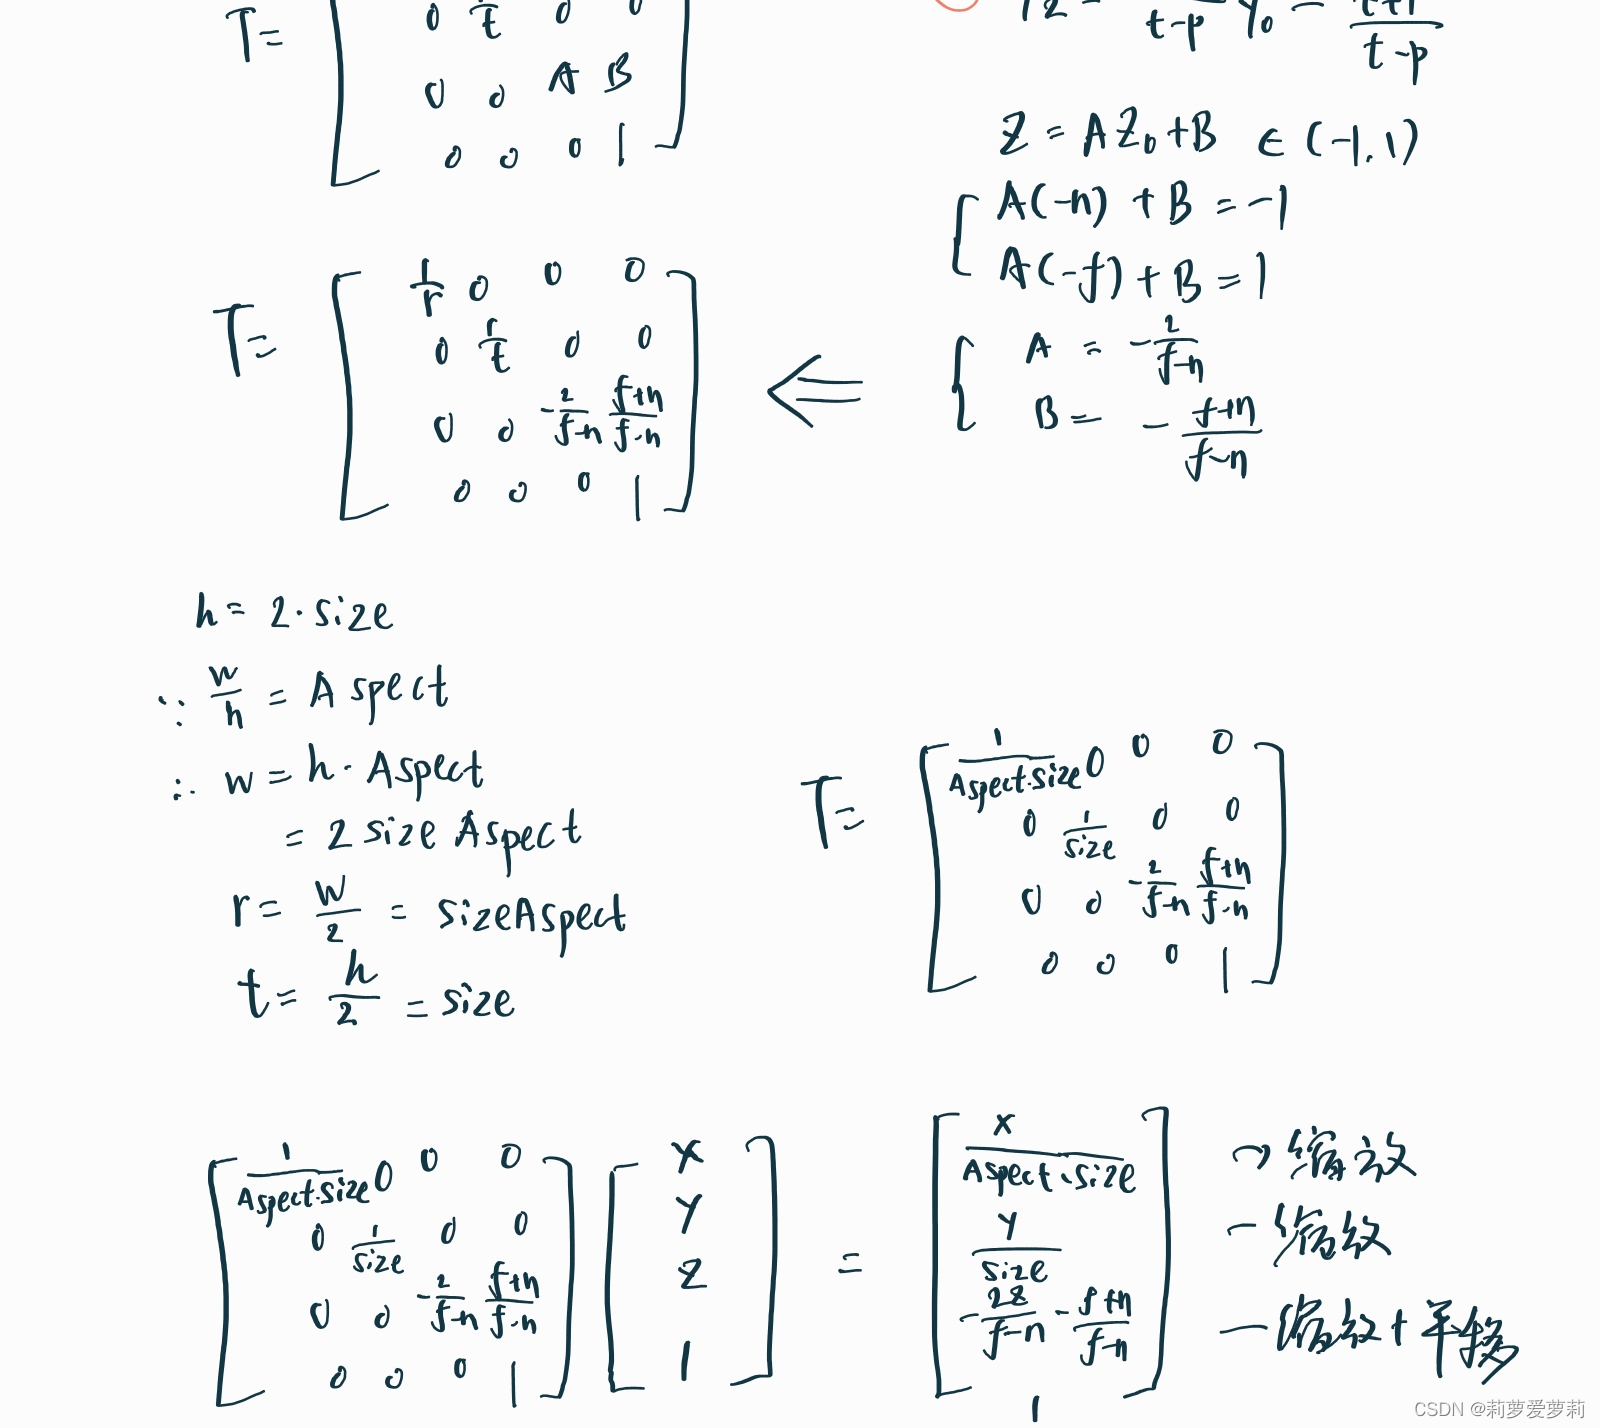 T= [ 0 1/t 0 0
0 0 A B
0 0 0 1 ]
t-p Y₀ - t-p
Z = AZ₀+B ∈ (-1,1)
A(-n) + B = -1
A(-f) + B = 1
T= [ 1/r 0 0 0
0 1/t 0 0
0 0 -2/(f-n) (f+n)/(f-n)
0 0 0 1 ] ⇐
A = -2/(f-n)
B = -(f+n)/(f-n)
h = 2·size
∵ w/h = Aspect
∴ w = h·Aspect
= 2 size Aspect
r = w/2 = sizeAspect
t = h/2 = size
T= [ 1/(Aspect·size) 0 0 0
0 1/size 0 0
0 0 -2/(f-n) (f+n)/(f-n)
0 0 0 1 ]
[ 1/(Aspect·size) 0 0 0
0 1/size 0 0
0 0 -2/(f-n) (f+n)/(f-n)
0 0 0 1 ] [ x
y
z
1 ] = [ x/(Aspect·size) → 缩放
y/size - 缩放
-2z/(f-n) - (f+n)/(f-n) — 缩放+平移
1 ]
CSDN @莉萝爱萝莉